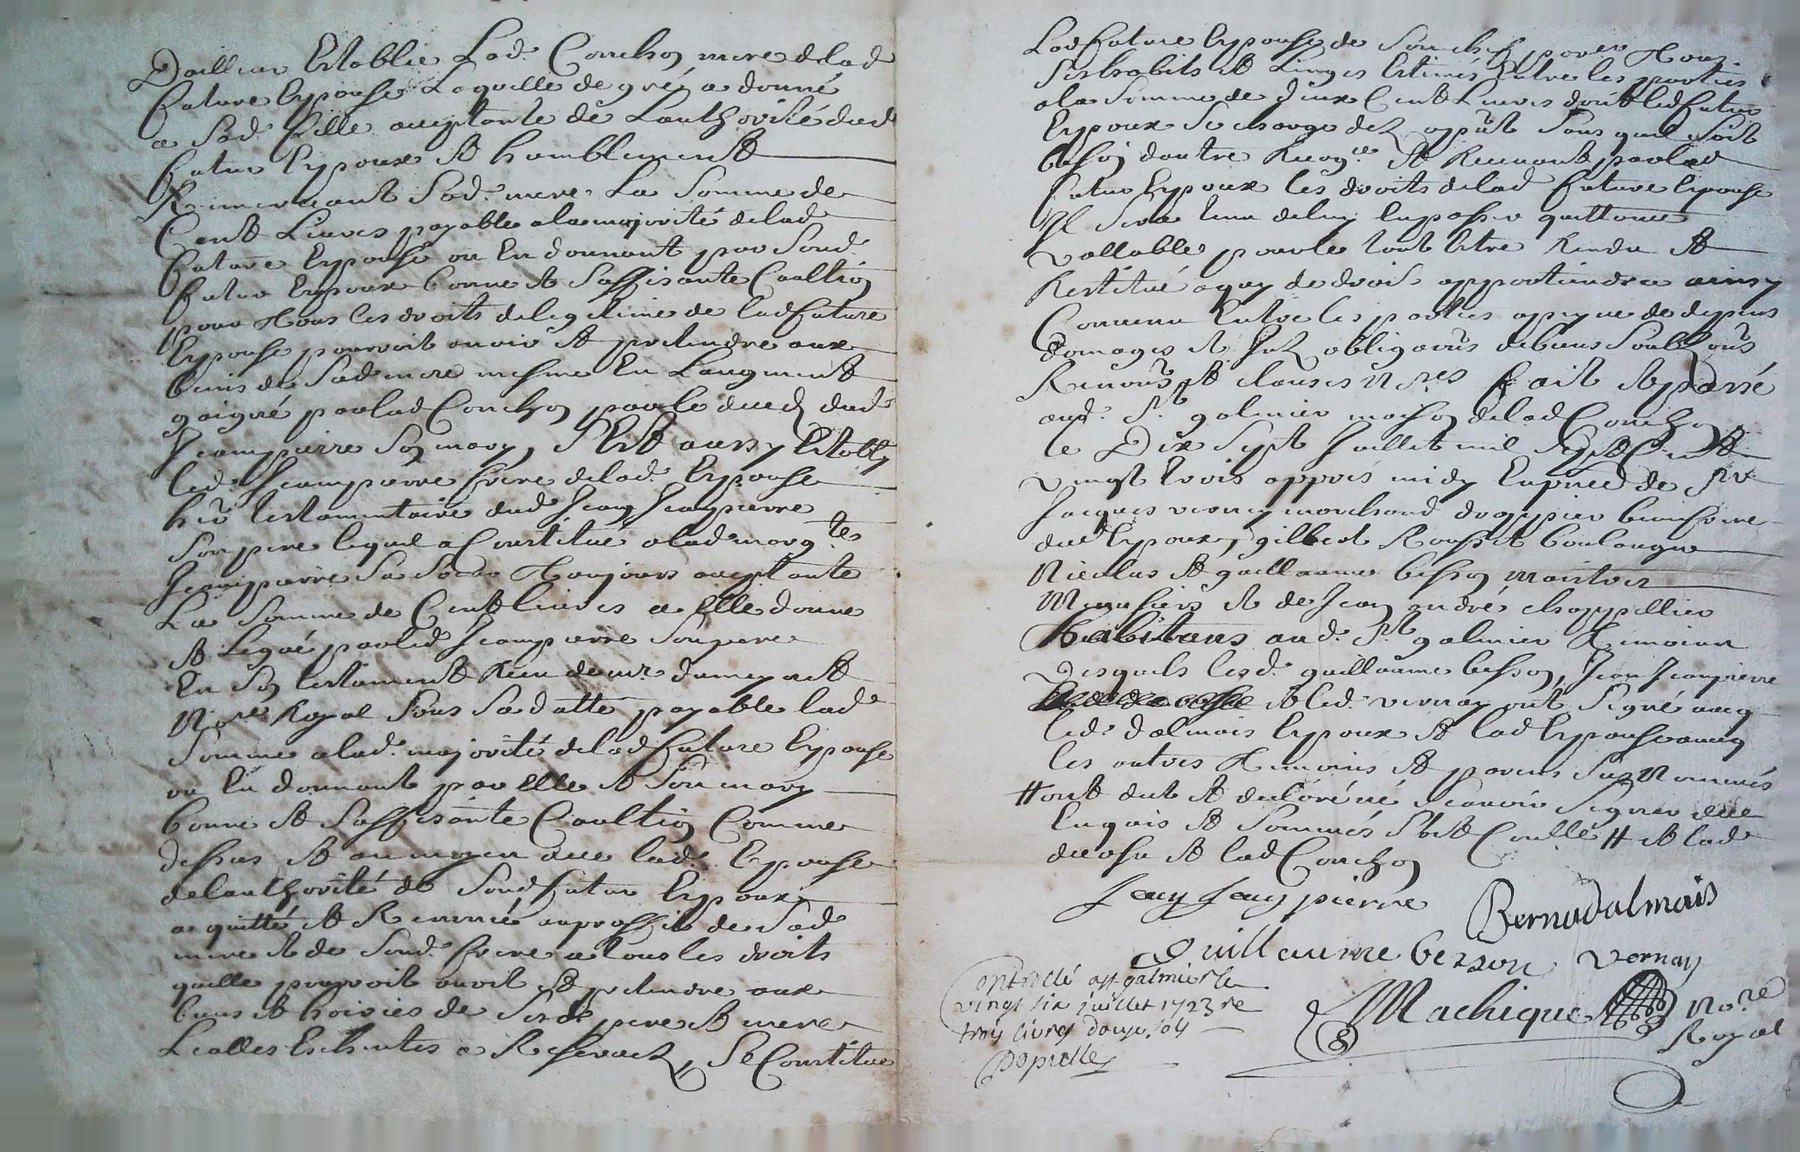 D'ailleur Establie Lad. Conchon mere delad
future Epouse Laquelle de gré a donné
a Sad. fille acceptante de Lauthorité dud
futur Epoux et humblement
Remerciant Sad. mere La Somme de
Cent Livres payable ala majorité delad
future Epouse ou En donnant par Sond
futur Epoux bonne et Suffisante Caultion
pour tous les droits de legitime de lad future
Epouse pourroit avoir et pretendre aux
biens de Sad mere mesme En Laugment
gaigné par lad Conchon par le deced dud
Jeampierre Son mary, S'Est aussy Estably
led. Jeampierre frere delad. Epouse
her testamentaire dud Jean Jeampierre
Son pere lequel a Constitué alad marg.tes
Jeampierre Sa Soeur toujours acceptante
La Somme de Cent livres a Elle donné
et Legué par led Jeampierre Son pere
En Son testament Receu dumeyme
No.re Royal Sous Sa datte payable lad
Somme alad. majorité delad future Epouse
ou En donnant par Elle et Son mary
bonne et Suffisante Caultion Comme
dessus et au moyen que lad. Epouse
de lauthorité de Sond futur Epoux
a quitté et Renoncé au proffit de Sad
mere et de Sond. frere a tous les droits
quelle pourroit avoir et pretendre aux
biens et hoiries de Sesd. pere et mere
Sealles Escheutes a Reservees, Se Constitue
Lad future Epouse de Son chef par
Ses habits et Linges Estimés Entre les parties
ala Somme de deux Cent Livres dont led futur
Epoux Se charge dez a pnt Sans quil Soit
besoin dautre Recog.ce et Recevant par led
futur Epoux les droits delad future Epouse
Il Sera tenu deluy En passer quittance
vallable pour le tout Estre Rendu et
Restitué a quy de droit appartiendra ainsy
Convenu Entre les parties a peyne de depens
domages et Intz obligaons de biens Soubz ons
Renons et clauses n.res fait et passé
aud. St galmier maison delad Conchon
le Dix Sept Juillet mil Sept Cent
vingt trois appres midy En pnce de Sr
Jacques vernay marchand drappier beaufrere
dud Epoux, gilbert Rousset boulangue
Nicolas et guillaume besson maistres
Menusiers et de Jean andré chappellier
habitans aud. St galmier temoins
desquels lesd. guillaume besson, Jean Jeampierre
et led. vernay ont Signé avec
led. dalmais Epoux et lad Epouse avec
les autres temoins et parens Susnommés
# ont dit et declaré ne Scavoir Signer de ce
Enquis et Sommés S'est Conttle # et lad
et lad Conchon
Jean Jean pierre
Bernadalmais
Guillaume besson vernay
Contrellé a St galmier le
vingt six juillet 1723 re
troy livres douze sols
Machique No.re
Royal